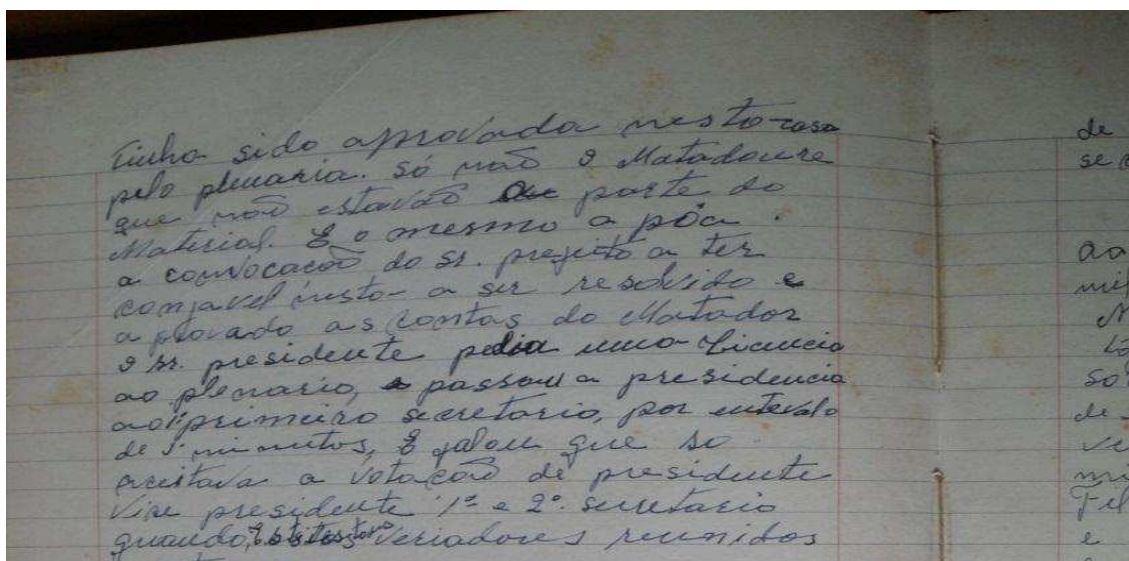 Tinha sido aprovada nesta casa
pelo plenaria. Só não o Matadoure
que não estavão parte do
Material. E o mesmo a póa.
a convocacão do sr. prefeito a ter
a ser resolvido e
a provado as contas do Matador
o sr. presidente pedia uma Licencia
ao plenario, e passou a presidencia
ao primeiro secretario, por entevalo
de 5 minutos, E falou que so
aceitava a votacão de presidente
Vice presidente 1º e 2º. secretario
quando, veriadores reunidos
de
se
aa
mil
so
de
ve
mi
e